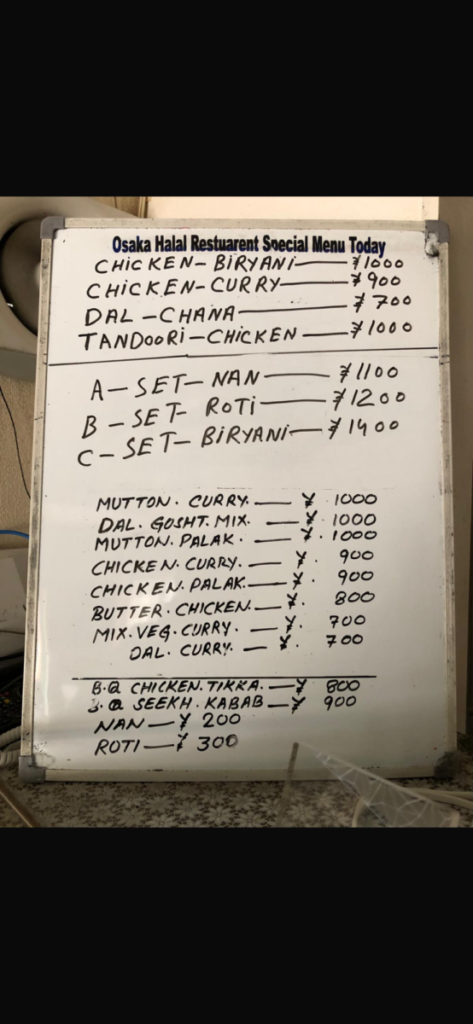 Osaka Halal Restuarent Special Menu Today
CHICKEN-BIRYANI — ¥1000
CHICKEN-CURRY — ¥900
DAL-CHANA — ¥700
TANDOORI-CHICKEN — ¥1000
A-SET-NAN — ¥1100
B-SET-ROTI — ¥1200
C-SET-BIRYANI — ¥1400
MUTTON. CURRY. — ¥ 1000
DAL. GOSHT. MIX. — ¥. 1000
MUTTON. PALAK. — ¥. 1000
CHICKEN. CURRY. — ¥. 900
CHICKEN. PALAK. — ¥. 900
BUTTER. CHICKEN. — ¥. 800
MIX. VEG. CURRY. — ¥. 700
DAL. CURRY. — ¥. 700
B.Q CHICKEN. TIKKA. — ¥ 800
B.Q SEEKH. KABAB — ¥ 900
NAN — ¥ 200
ROTI — ¥ 300